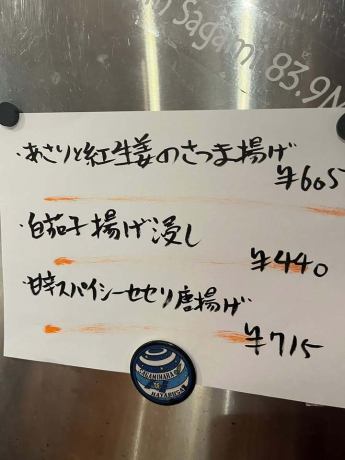 Sagami 83.9M
・あさりと紅生姜のさつま揚げ
¥605
・白茄子揚げ浸し
¥440
・甘辛スパイシーセセリ唐揚げ
¥715
SAGAMIHARA
HAYABUSA